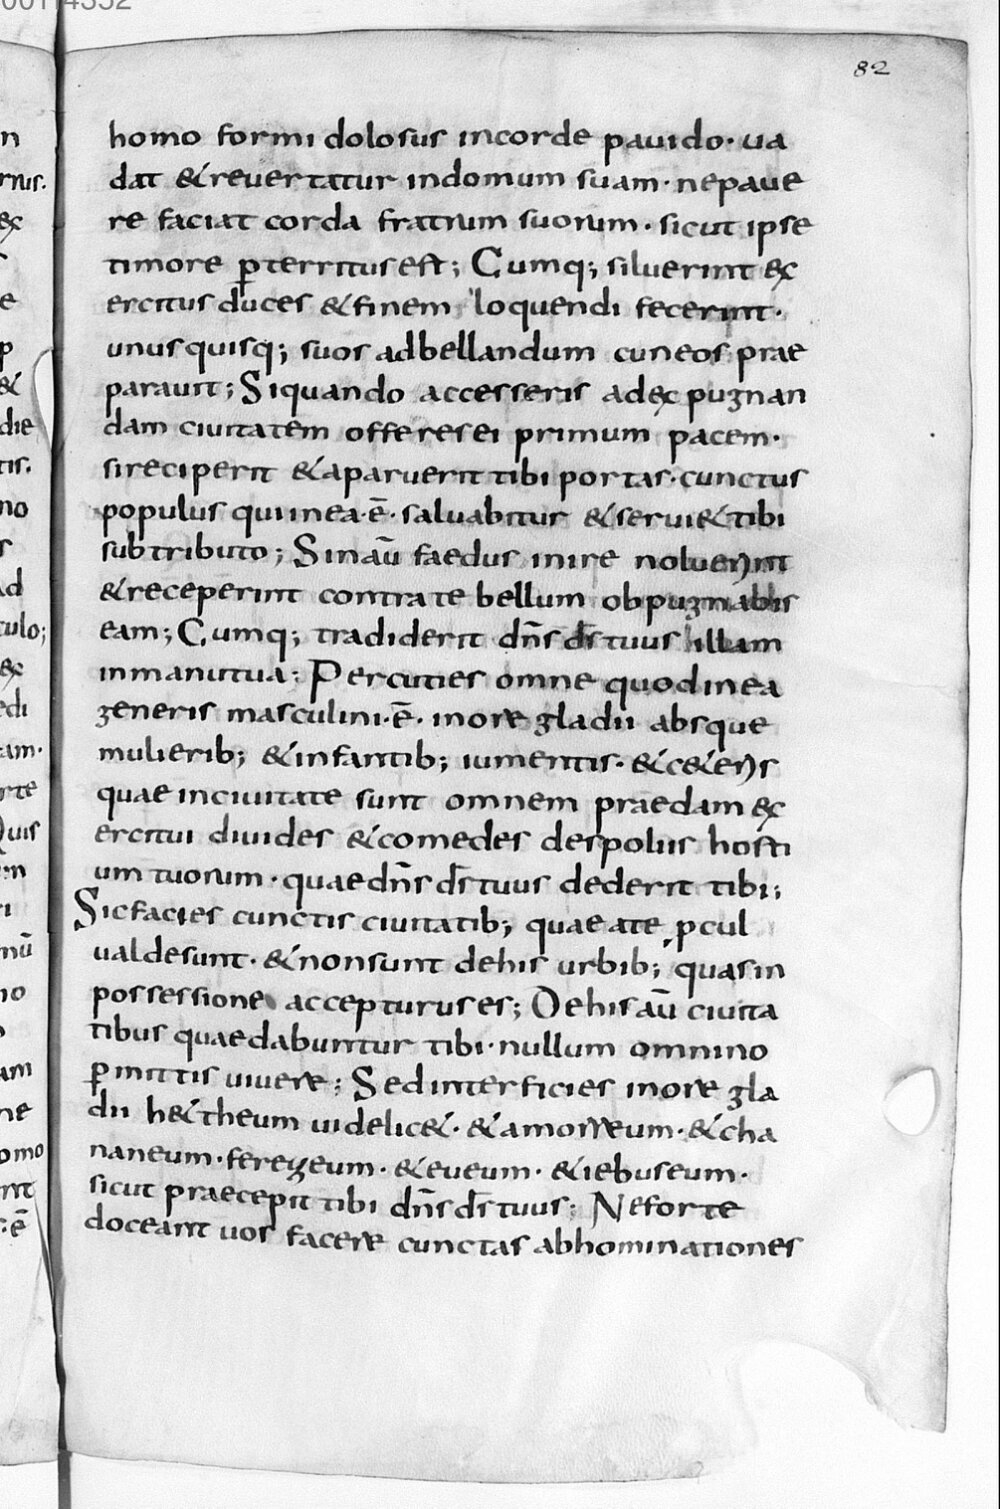 82
homo formidolosus incorde pauido· ua
dat &reuertatur indomum suam· nepaue
re faciat corda fratrum suorum· sicut ipse
timore p̱territus est; Cumq; siluerint ex
ercitus duces &finem loquendi fecerint·
unusquisq; suos adbellandum cuneos prae
parauit; Siquando accesseris adexpugnan
dam ciuitatem offeresei primum pacem·
sireciperit &aparuerit tibi portas· cunctus
populus quiinea·ē· saluabitur &serui&tibi
subtributo; Sinaū faedus inire noluerint
&receperint contrate bellum obpugnabis
eam; Cumq; tradiderit dn̄s ds̄ tuus illam
inmanutua; Percuties omne quodinea
generis masculini·ē· inore gladii absque
mulierib; &infantib; iumentis· &c&eris
quae inciuitate sunt omnem praedam ex
ercitui diuides &comedes despoliis hosti
um tuorum· quaedn̄s ds̄ tuus dederit tibi;
Sicfacies cunctis ciuitatib; quae ate pcul
ualdesunt· &nonsunt dehis urbib; quasin
possessione accepturuses; Dehisaū ciuita
tibus quaedabuntur tibi· nullum omnino
p̱mittis uiuere; Sedinterficies inore gla
dii h&theum uidelic&· &amorreum· &cha
naneum· ferezeum· &eueum· &iebuseum·
sicut praecepit tibi dn̄s ds̄ tuus; Neforte
doceant uos facere cunctas abhominationes